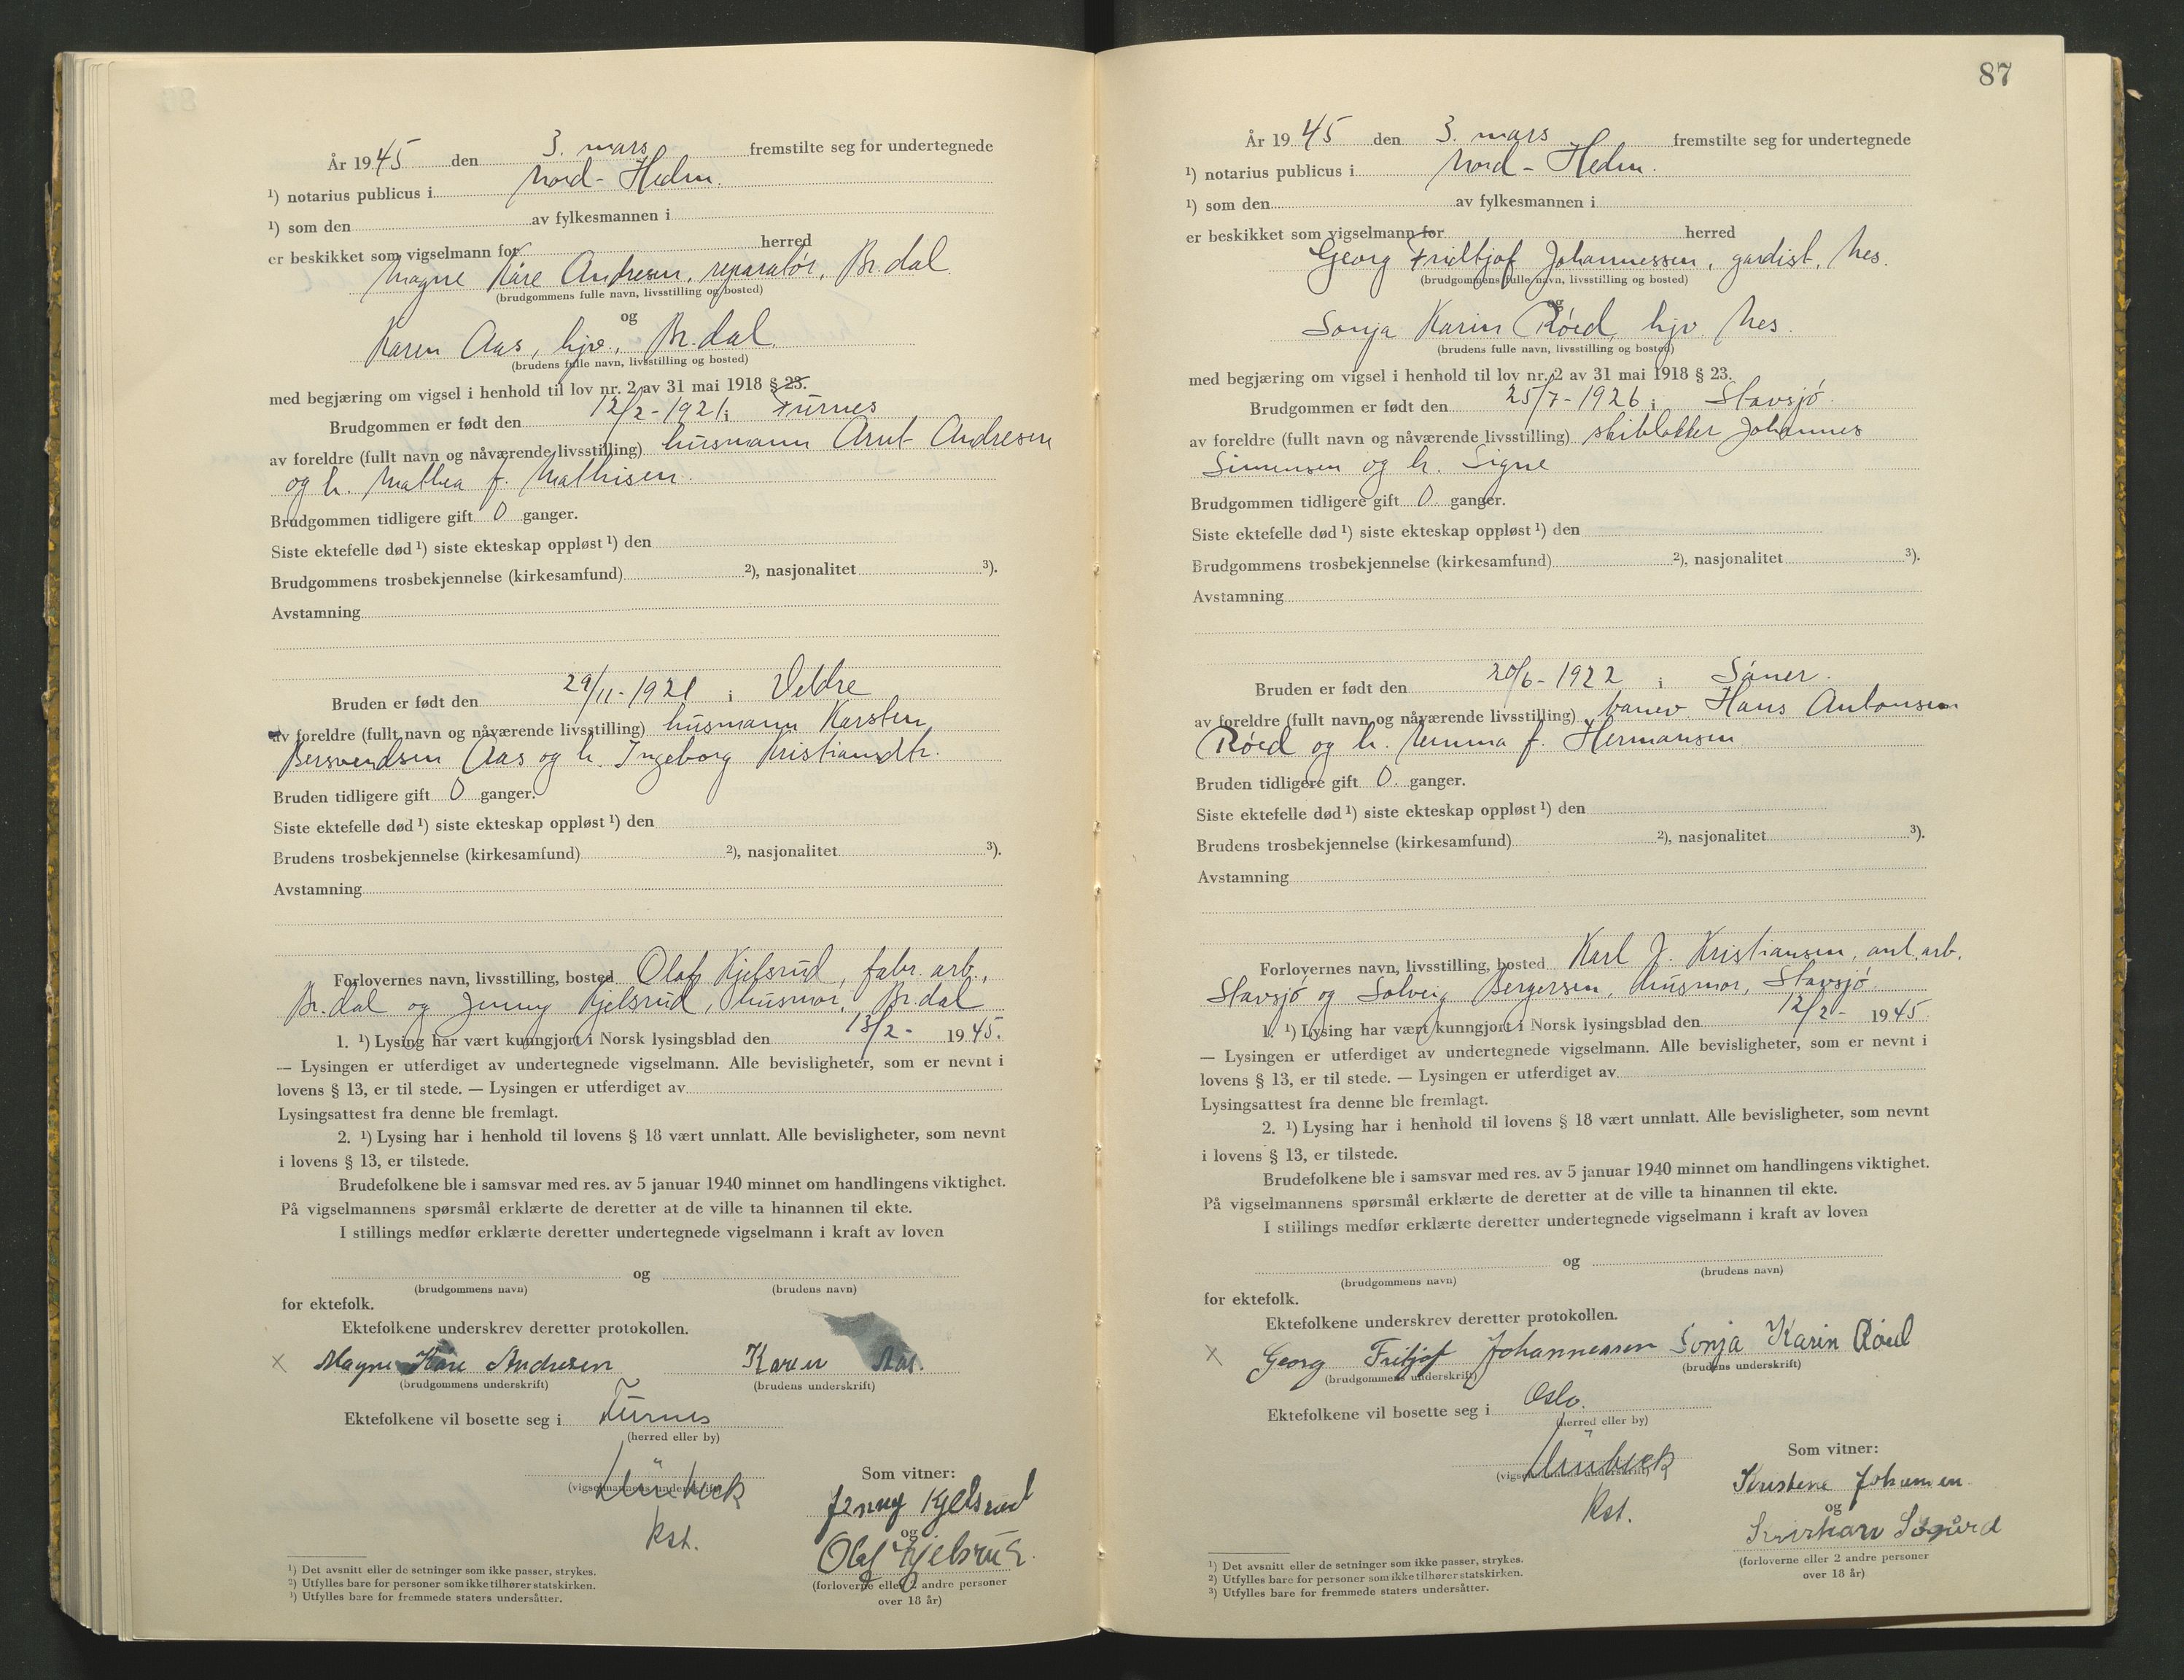 År 1945 den 3. mars fremstilte seg for undertegnede
¹) notarius publicus i Nord-Hedm.
¹) som den av fylkesmannen i
er beskikket som vigselmann for herred
Magne Kåre Andresen, reparatør, Br.dal.
(brudgommens fulle navn, livsstilling og bosted)
og
Karen Aas, hjv., Br.dal
(brudens fulle navn, livsstilling og bosted)
med begjæring om vigsel i henhold til lov nr. 2 av 31 mai 1918 § 23.
Brudgommen er født den 12/2-1921 i Furnes
av foreldre (fullt navn og nåværende livsstilling) husmann Arnt Andresen
og h. Mathea f. Mathisen.
Brudgommen tidligere gift 0 ganger.
Siste ektefelle død ¹) siste ekteskap oppløst ¹) den
Brudgommens trosbekjennelse (kirkesamfund) ²), nasjonalitet ³).
Avstamning
Bruden er født den 29/11-1921 i Veldre
av foreldre (fullt navn og nåværende livsstilling) husmann Karsten
Bersvendsen Aas og h. Ingeborg Kristiansdtr.
Bruden tidligere gift 0 ganger.
Siste ektefelle død ¹) siste ekteskap oppløst ¹) den
Brudens trosbekjennelse (kirkesamfund) ²), nasjonalitet ³).
Avstamning
Forlovernes navn, livsstilling, bosted Olaf Kjelsrud, fabr. arb.,
Br.dal og Jenny Kjelsrud, husmor, Br.dal
1. ¹) Lysing har vært kunngjort i Norsk lysingsblad den 13/2- 1945.
— Lysingen er utferdiget av undertegnede vigselmann. Alle bevisligheter, som er nevnt i
lovens § 13, er til stede. — Lysingen er utferdiget av
Lysingsattest fra denne ble fremlagt.
2. ¹) Lysing har i henhold til lovens § 18 vært unnlatt. Alle bevisligheter, som nevnt
i lovens § 13, er tilstede.
Brudefolkene ble i samsvar med res. av 5 januar 1940 minnet om handlingens viktighet.
På vigselmannens spørsmål erklærte de deretter at de ville ta hinannen til ekte.
I stillings medfør erklærte deretter undertegnede vigselmann i kraft av loven
og
(brudgommens navn) (brudens navn)
for ektefolk.
Ektefolkene underskrev deretter protokollen.
x Magne Kåre Andresen Karen Aas.
(brudgommens underskrift) (brudens underskrift)
Ektefolkene vil bosette seg i Furnes
(herred eller by)
Som vitner:
(vigselmannens underskrift)
Jenny Kjelsrud
kst.
og
Olaf Kjelsrud.
(forloverne eller 2 andre personer
over 18 år)
¹) Det avsnitt eller de setninger som ikke passer, strykes.
²) Utfylles bare for personer som ikke tilhører statskirken.
³) Utfylles bare for fremmede staters undersåtter.
87
År 1945 den 3. mars fremstilte seg for undertegnede
¹) notarius publicus i Nord-Hedm.
¹) som den av fylkesmannen i
er beskikket som vigselmann for herred
Georg Fridtjof Johannessen, gardist, Nes.
(brudgommens fulle navn, livsstilling og bosted)
og
Sonja Karin Røed, hjv. Nes.
(brudens fulle navn, livsstilling og bosted)
med begjæring om vigsel i henhold til lov nr. 2 av 31 mai 1918 § 23.
Brudgommen er født den 25/7-1926 i Stavsjø.
av foreldre (fullt navn og nåværende livsstilling) Johannes
Simensen og h. Signe
Brudgommen tidligere gift 0 ganger.
Siste ektefelle død ¹) siste ekteskap oppløst ¹) den
Brudgommens trosbekjennelse (kirkesamfund) ²), nasjonalitet ³).
Avstamning
Bruden er født den 20/6-1922 i Såner.
av foreldre (fullt navn og nåværende livsstilling) banev. Hans Antonsen
Røed og h. f. Hermansen
Bruden tidligere gift 0. ganger.
Siste ektefelle død ¹) siste ekteskap oppløst ¹) den
Brudens trosbekjennelse (kirkesamfund) ²), nasjonalitet ³).
Avstamning
Forlovernes navn, livsstilling, bosted Karl J. Kristiansen, anl. arb.
Stavsjø og Solveig Bergersen, husmor, Stavsjø.
1. ¹) Lysing har vært kunngjort i Norsk lysingsblad den 12/2- 1945
— Lysingen er utferdiget av undertegnede vigselmann. Alle bevisligheter, som er nevnt i
lovens § 13, er til stede. — Lysingen er utferdiget av
Lysingsattest fra denne ble fremlagt.
2. ¹) Lysing har i henhold til lovens § 18 vært unnlatt. Alle bevisligheter, som nevnt
i lovens § 13, er tilstede.
Brudefolkene ble i samsvar med res. av 5 januar 1940 minnet om handlingens viktighet.
På vigselmannens spørsmål erklærte de deretter at de ville ta hinannen til ekte.
I stillings medfør erklærte deretter undertegnede vigselmann i kraft av loven
og
(brudgommens navn) (brudens navn)
for ektefolk.
Ektefolkene underskrev deretter protokollen.
x Georg Fritjof Johannessen Sonja Karin Røed
(brudgommens underskrift) (brudens underskrift)
Ektefolkene vil bosette seg i Oslo.
(herred eller by)
Som vitner:
(vigselmannens underskrift)
kst.
og
(forloverne eller 2 andre personer
over 18 år)
¹) Det avsnitt eller de setninger som ikke passer, strykes.
²) Utfylles bare for personer som ikke tilhører statskirken.
³) Utfylles bare for fremmede staters undersåtter.